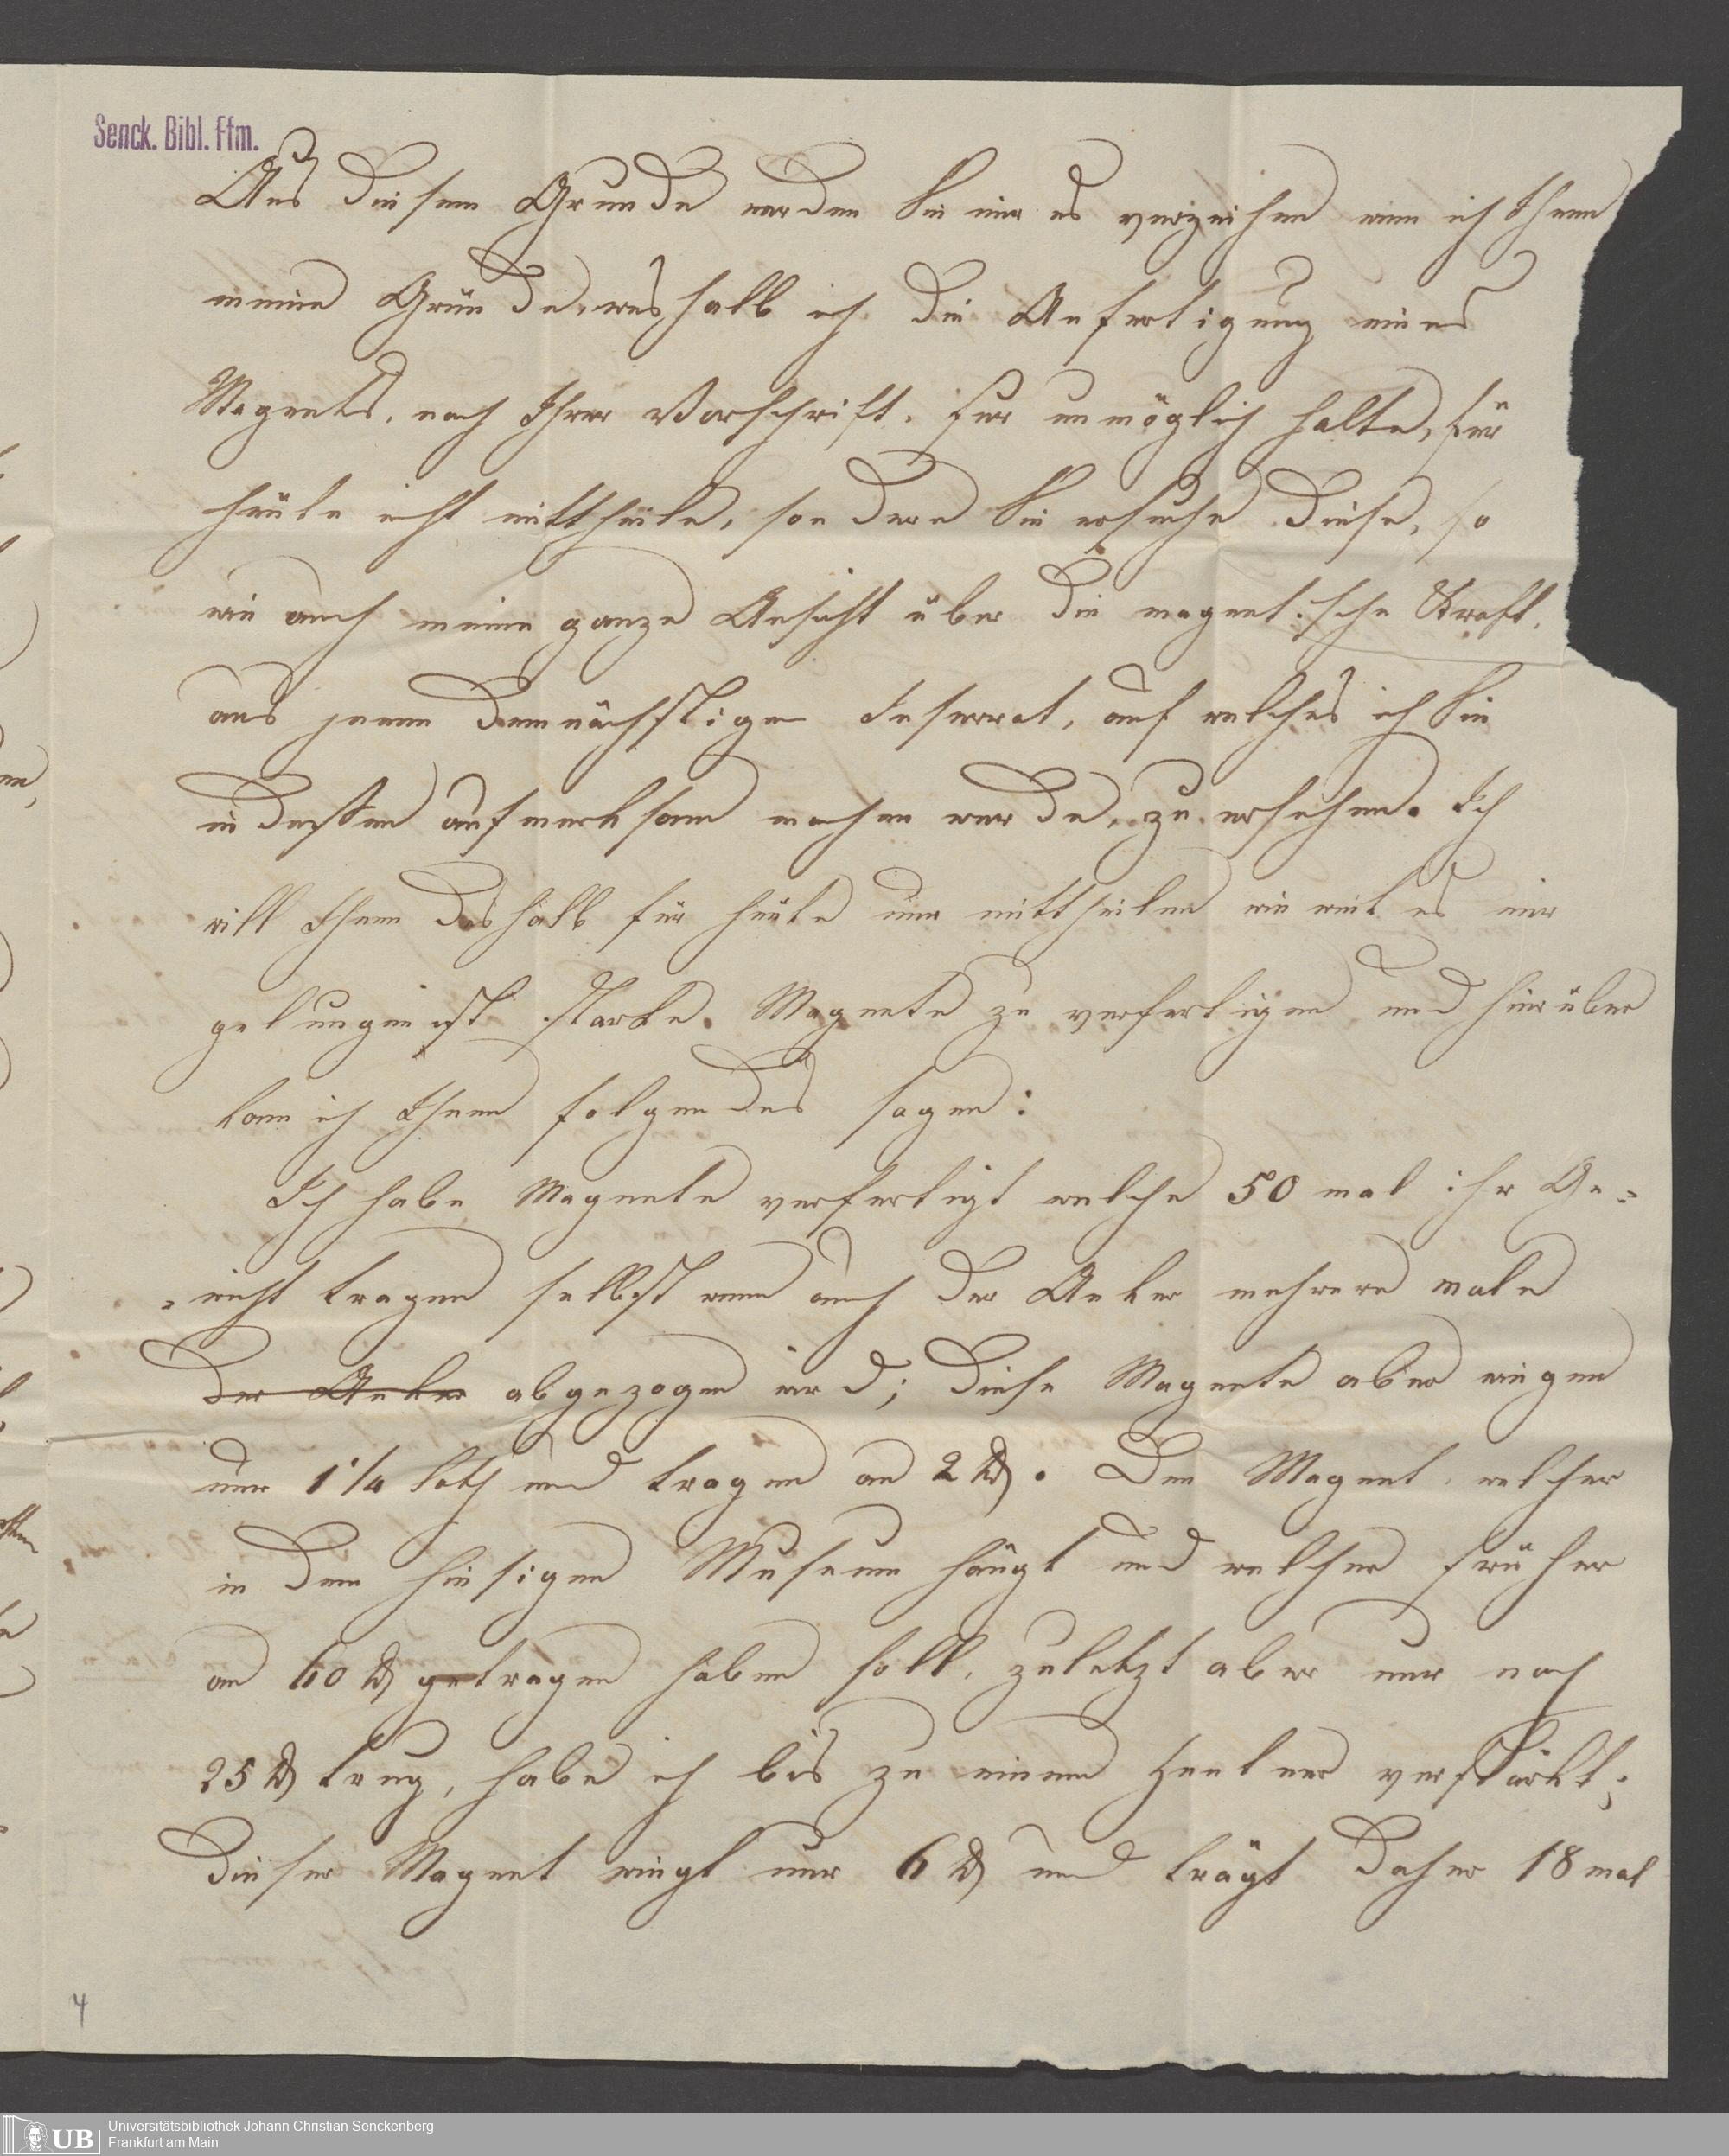 Senck. Bibl. Ffm.
Aus diesem Grunde werden Sie mir es verzeihen wenn ich Ihnen
meine Gründe, weshalb ich die Anfertigung eines
Magnets, nach Ihrer Vorschrift, fur unmöglich halte, für
heute nicht mittheile, sondern Sie ersuche diese, so
wie auch meine ganze Ansicht über die magnetische Kraft,
aus jenem demnächstigen Inserrat, auf welches ich Sie
indessen aufmerksam machen werde, zu ersehen. Ich
will Ihnen deshalb für heute nur mittheilen wie weit es mir
gelungen ist starke Magnete zu verfertigen und hierüber
kann ich Ihnen folgendes sagen:
Ich habe Magnete verfertigt welche 50 mal ihr Ge=
=wicht tragen selbst wenn auch der Anker mehrere male
der Anker abgezogen wird; diese Magnete aber wiegen
nur 1 1/4 Loth und tragen an 2 ℔. Den Magnet, welcher
in dem hiesigen Museum hängt und welcher früher
an 60 ℔ getragen haben soll, zuletzt aber nur noch
25 ℔ trug, habe ich bis zu einem Zentner verstärkt;
dieser Magnet wiegt nur 6 ℔ und trägt daher 18 mal
4
UB
Universitätsbibliothek Johann Christian Senckenberg
Frankfurt am Main